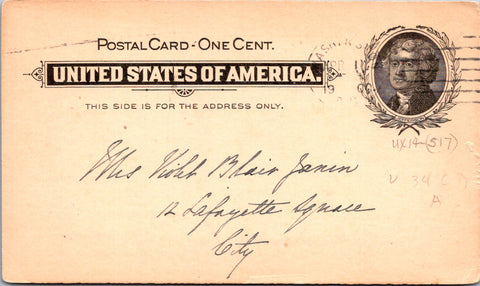 POSTAL CARD - ONE CENT.
UNITED STATES OF AMERICA.
THIS SIDE IS FOR THE ADDRESS ONLY.
Mrs Violet Blair Janin
12 Lafayette Square
City
UX14 (S17)
A